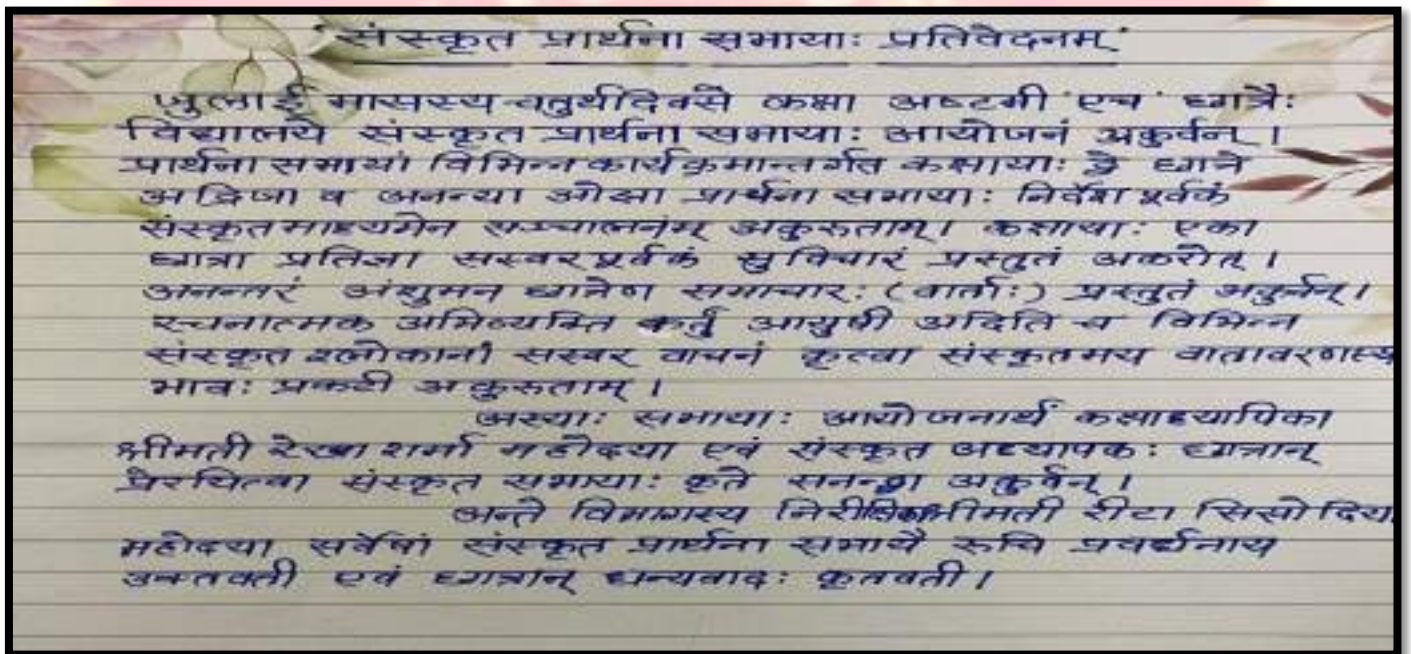 'संस्कृत प्रार्थना सभायाः प्रतिवेदनम्'
जुलाई मासस्य चतुर्थीदिवसे कक्षा अष्टमी 'एच' छात्रैः
विद्यालये संस्कृत प्रार्थना सभायाः आयोजनं अकुर्वन् ।
प्रार्थना सभायां विभिन्न कार्यक्रमान्तर्गत कक्षायाः द्वै छात्रे
अद्रिजा व अनन्या ओझा प्रार्थना सभायाः निर्देश पूर्वकं
संस्कृतमाध्यमेन सञ्चालनंम् अकुरुताम्। कक्षायाः एका
छात्रा प्रतिज्ञा सस्वर पूर्वकं सुविचारं प्रस्तुतं अकरोत् ।
अनन्तरं अंशुमन छात्रेण समाचारः (वार्ताः) प्रस्तुतं अकुर्वन्।
रचनात्मक अभिव्यक्ति कर्तुं आयुषी अदिति च विभिन्न
संस्कृत श्लोकानां सस्वर वाचनं कृत्वा संस्कृतमय वातावरणस्य
भावः प्रकटी अकुरुताम् ।
अस्याः सभायाः आयोजनार्थं कक्षाध्यापिका
श्रीमती रेखा शर्मा महोदया एवं संस्कृत अध्यापकः छात्रान्
प्रेरयित्वा संस्कृत सभायाः कृते सनद्धा अकुर्वन् ।
अन्ते विभागस्य श्रीमती रीटा सिसोदिया
महोदया सर्वेषां संस्कृत प्रार्थना सभायै रूचि प्रवर्धनाय
उक्तवती एवं छात्रान् धन्यवादः कृतवती ।